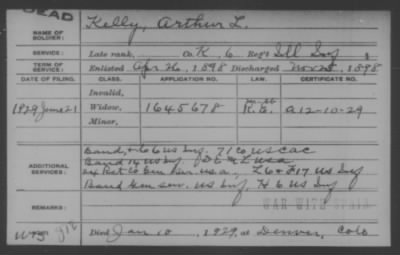 DEAD
NAME OF SOLDIER: Kelly, Arthur L.
SERVICE: Late rank, Co. K, 6 Reg't Ill Inf
TERM OF SERVICE: Enlisted Apr 26, 1898 Discharged Nov 25, 1898
DATE OF FILING. CLASS. APPLICATION NO. LAW. CERTIFICATE NO.
Invalid,
1929 June 21 Widow, 1645678 A 12-10-29
Minor,
ADDITIONAL SERVICES: Band, 6 US Inf. 71 Co US CAC
Band 14 US Inf. D E M L USA
Rct Co Gen Ser. US a, L 6 & F 17 US Inf
Band Gen Ser. US Inf, H 6 US Inf
REMARKS: WAR WITH SPAIN
Died Jan 10, 1929, at Denver, Colo